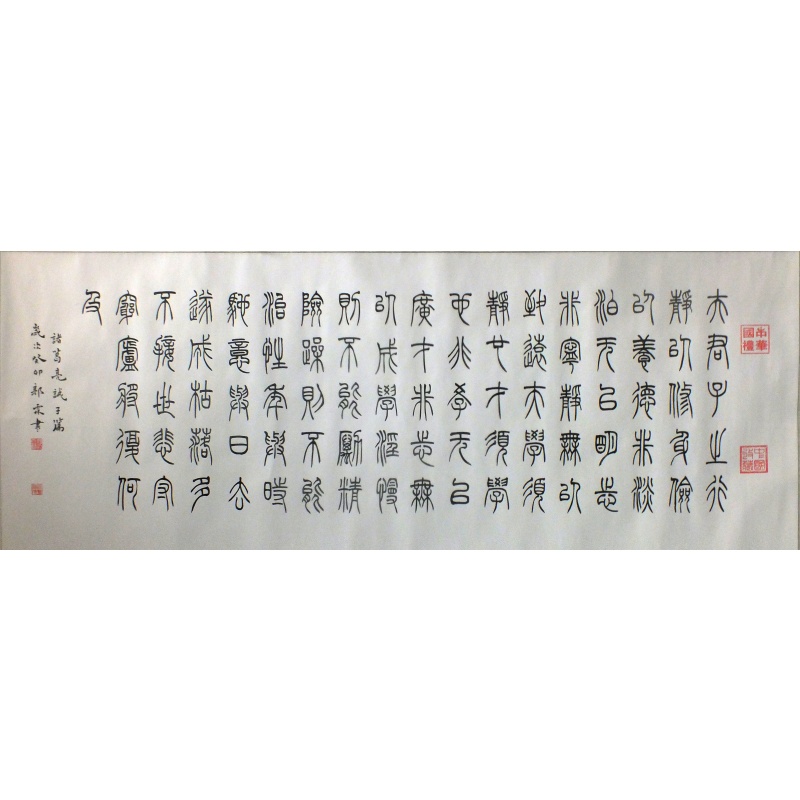 夫君子之行
靜以修身儉
以養德非淡
泊无以明志
非寧靜無以
致遠夫學須
靜也才須學
也非學无以
廣才非志無
以成學淫慢
則不能勵精
險躁則不能
治性年與時
馳意與日去
遂成枯落多
不接世悲守
窮廬將復何
及
諸葛亮誡子篇
歲次癸卯郭霖書
中華國禮